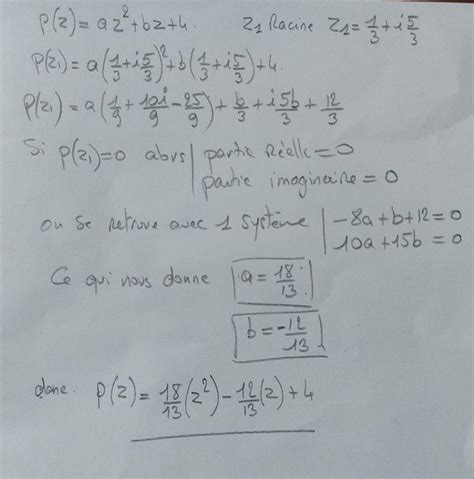 P(z) = az² + bz + 4. Z₁ Racine Z₁ = 1/3 + i 5/3
P(z₁) = a(1/3 + i 5/3)² + b(1/3 + i 5/3) + 4.
P(z₁) = a(1/9 + 10i/9 - 25/9) + b/3 + i5b/3 + 12/3
Si P(z₁) = 0 alors | partie Réelle = 0
partie imaginaire = 0
on se retrouve avec 1 système | -8a + b + 12 = 0
10a + 15b = 0
Ce qui nous donne a = 18/13
b = -12/13
donc P(z) = 18/13 (z²) - 12/13 (z) + 4